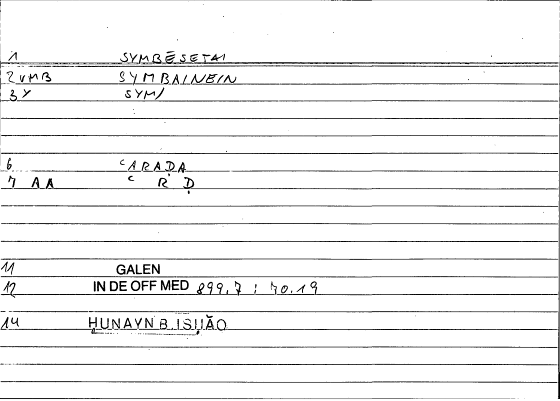 1 SYMBĒSETAI
2 VMB SYMBAINEIN
3 Y SYM/
6 ʿARAḌA
7 AA ʿ R Ḍ
11 GALEN
12 IN DE OFF MED 899.7 ; 70.19
14 ḤUNAYN B. ISḤĀQ